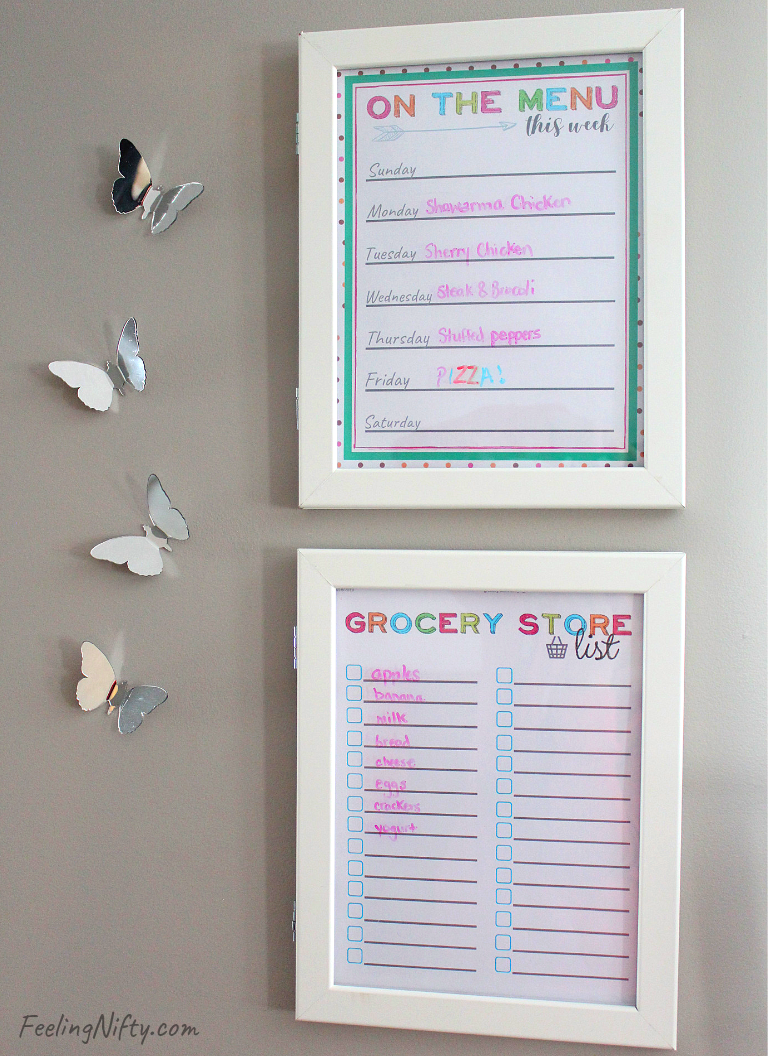 ON THE MENU
this week
Sunday
Monday Shawarma Chicken
Tuesday Sherry Chicken
Wednesday Steak & Brocoli
Thursday Stuffed peppers
Friday PIZZA!
Saturday
GROCERY STORE
list
apples
banana
milk
bread
cheese
eggs
crackers
yogurt
FeelingNifty.com